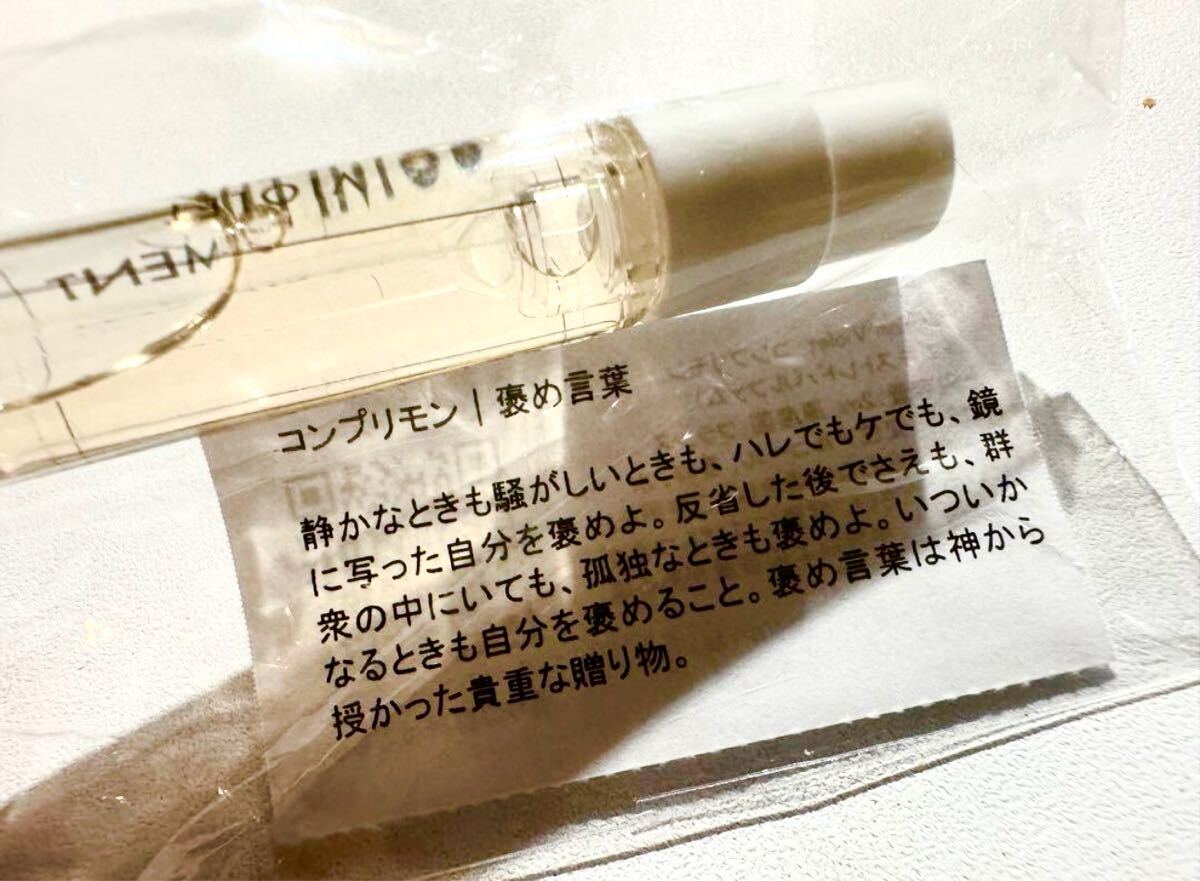 コンプリモン | 褒め言葉
静かなときも騒がしいときも、ハレでもケでも、鏡
に写った自分を褒めよ。反省した後でさえも、群
衆の中にいても、孤独なときも褒めよ。いついか
なるときも自分を褒めること。褒め言葉は神から
授かった貴重な贈り物。